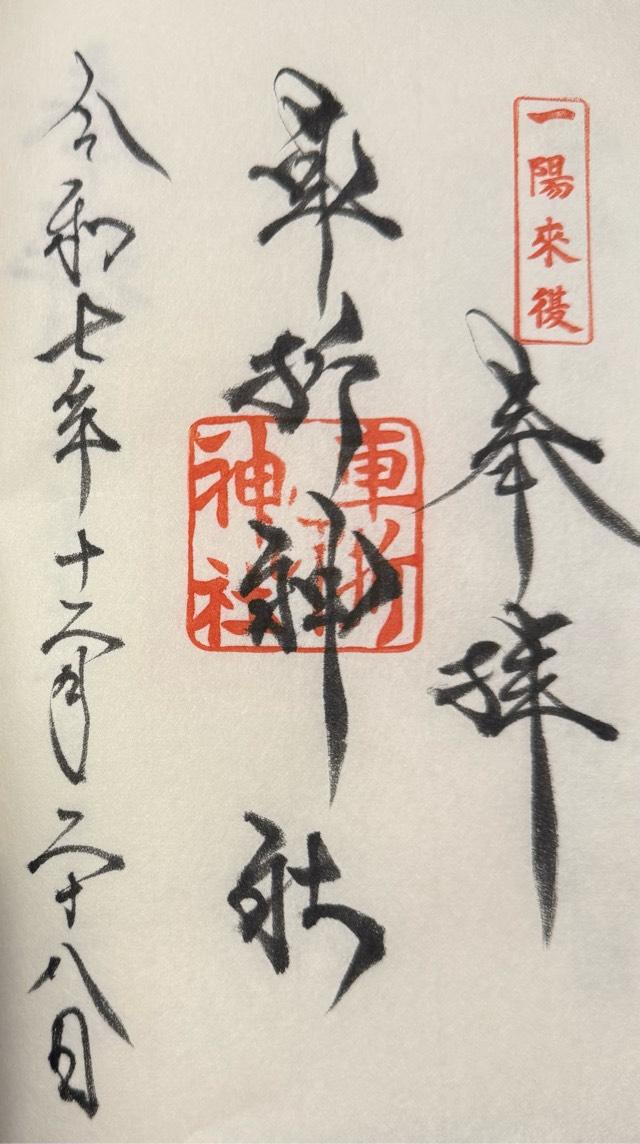 一陽來復
奉拝
車折神社
車折
神社
令和七年十二月二十八日